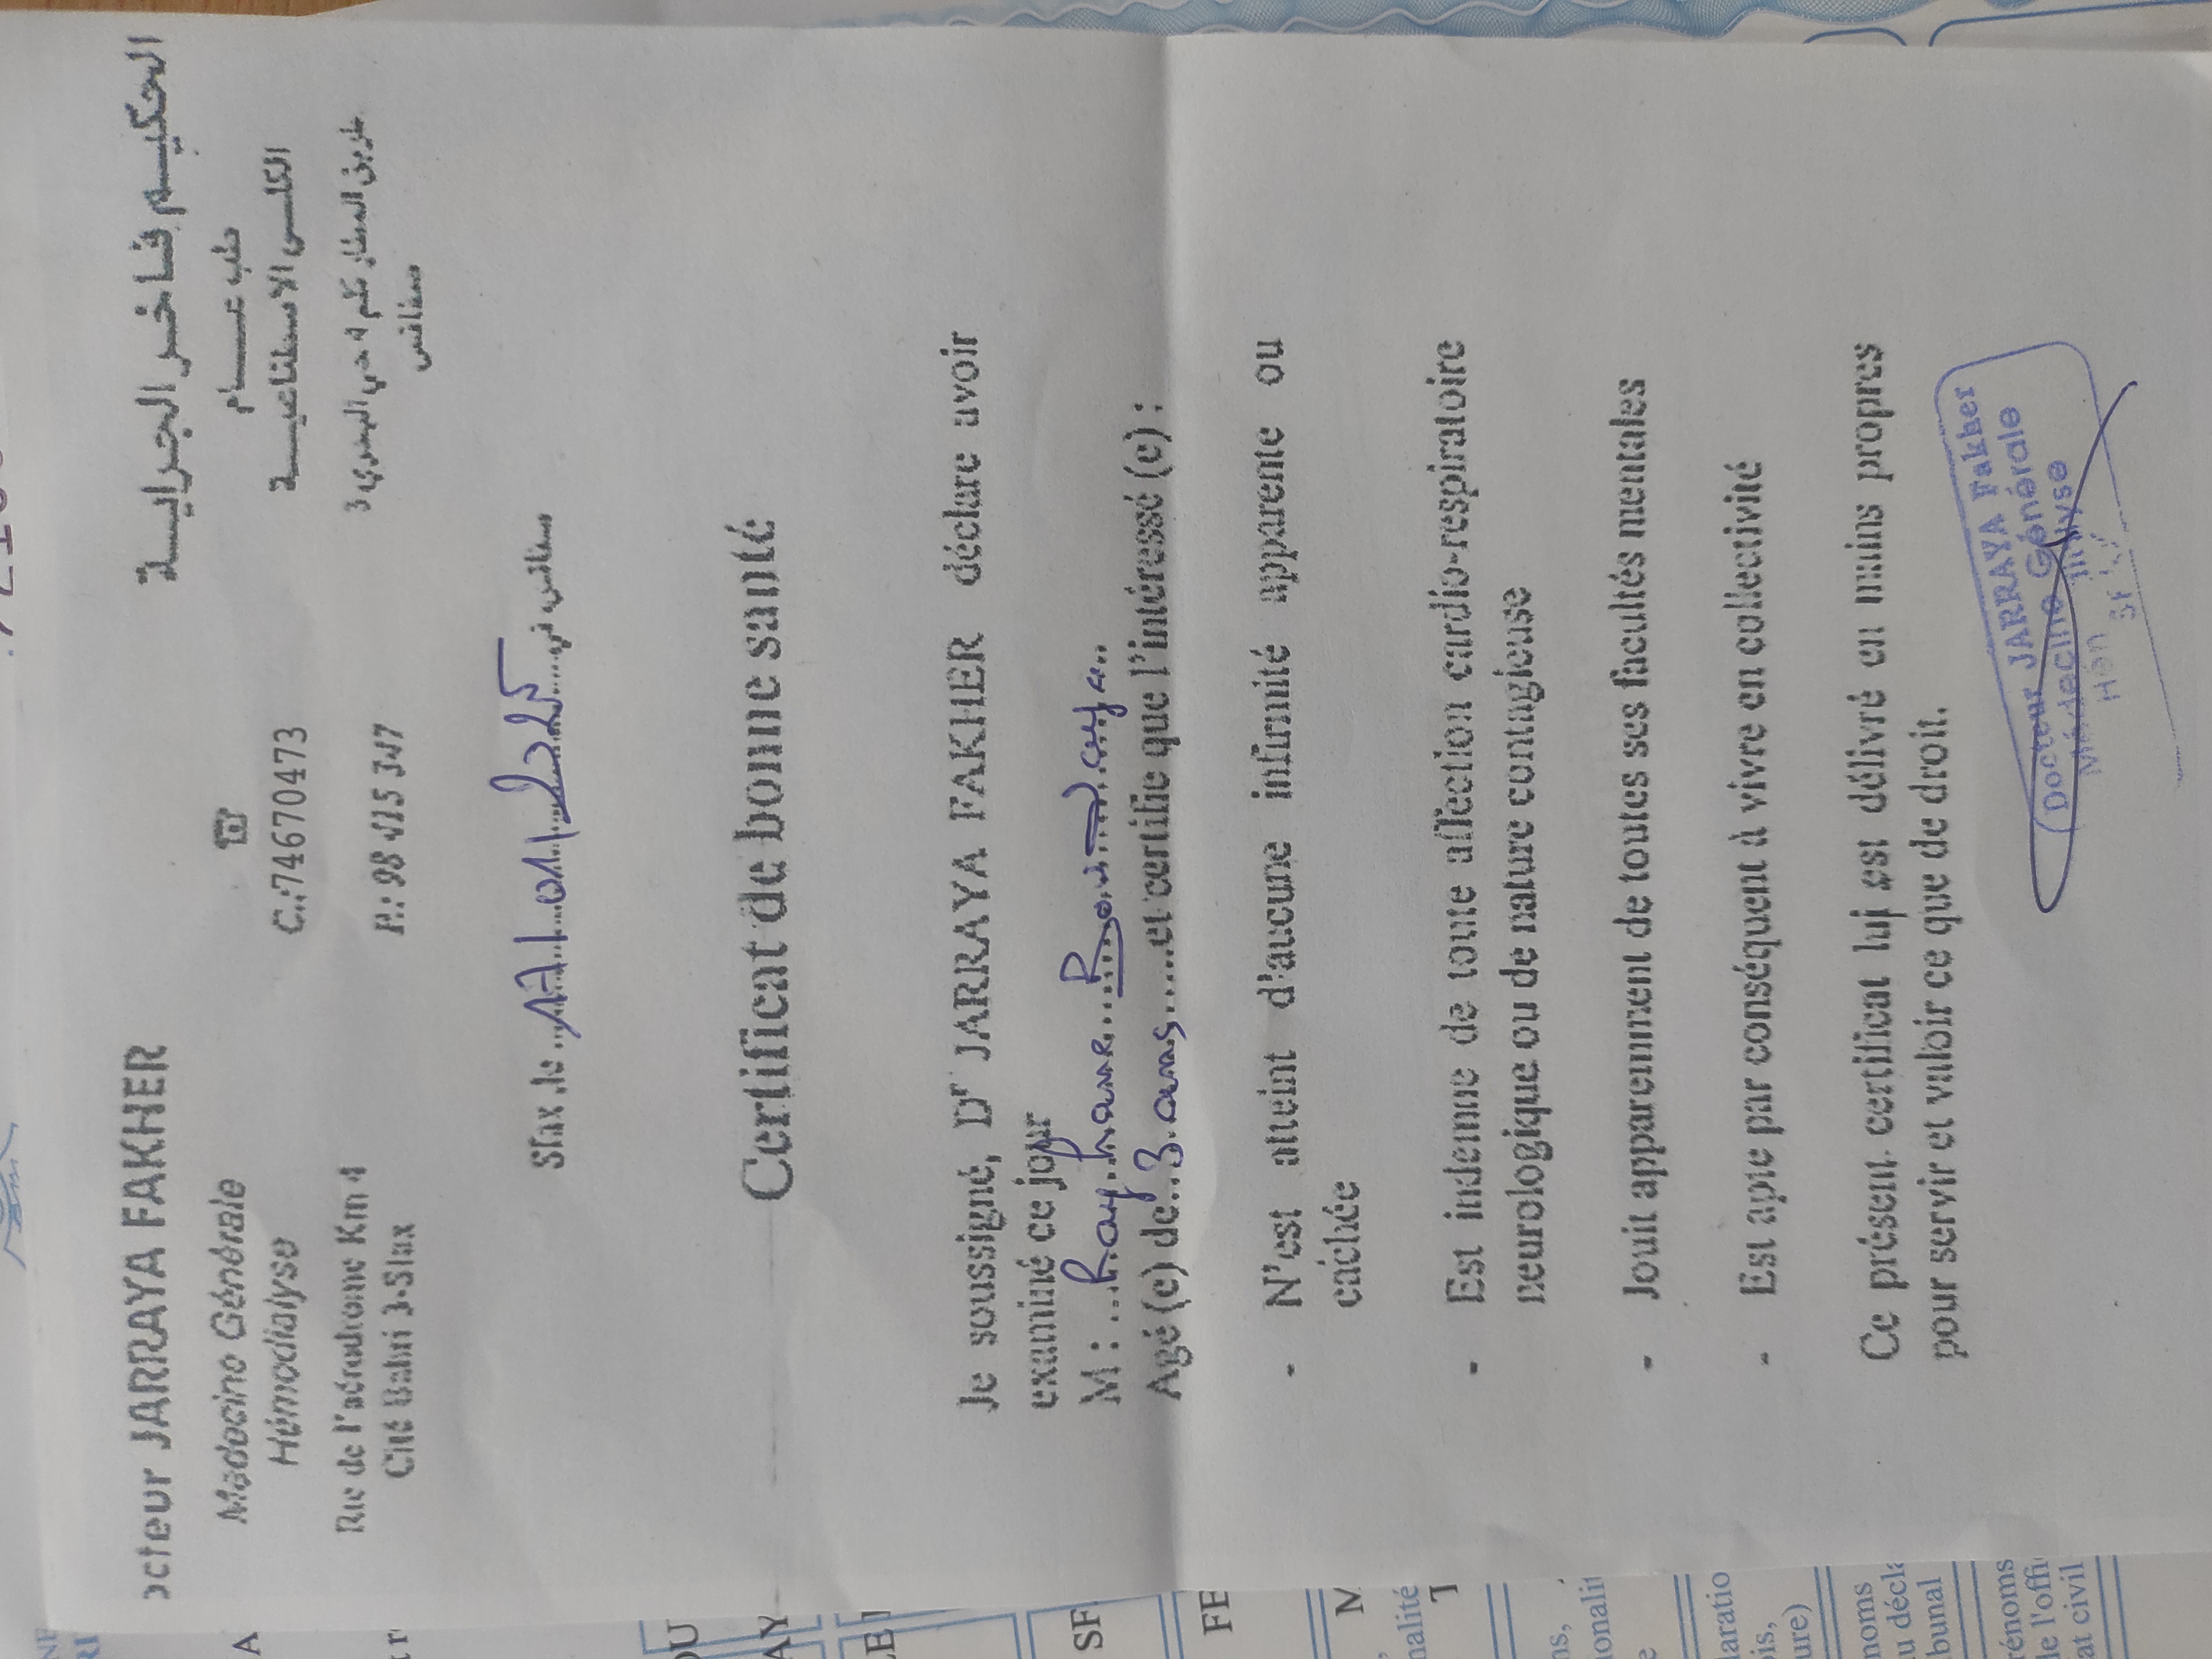 octeur JARRAYA FAKHER
Médecine Générale
Hémodialyse
Rte de l'aérodrome Km 4
Cité Bahri 3-Sfax
☎
C.:74670473
P.: 98 415 347
الحكيم فاخر الجراية
طب عام
الكلى الاصطناعية
طريق المطار كلم 4 حي البحري 3
صفاقس
Sfax ,le 17/01/2025 صفاقس في
Certificat de bonne santé
Je soussigné, Dr JARRAYA FAKHER déclare avoir
examiné ce jour
M : Rayhane
Agé (e) de 3 ans et certifie que l'intéressé (e) :
- N'est atteint d'aucune infirmité apparente ou
cachée
- Est indemne de toute affection cardio-respiratoire
neurologique ou de nature contagieuse
- Jouit apparemment de toutes ses facultés mentales
- Est apte par conséquent à vivre en collectivité
Ce présent certificat lui est délivré en mains propres
pour servir et valoir ce que de droit.
Docteur JARRAYA Fakher
Médecine Générale